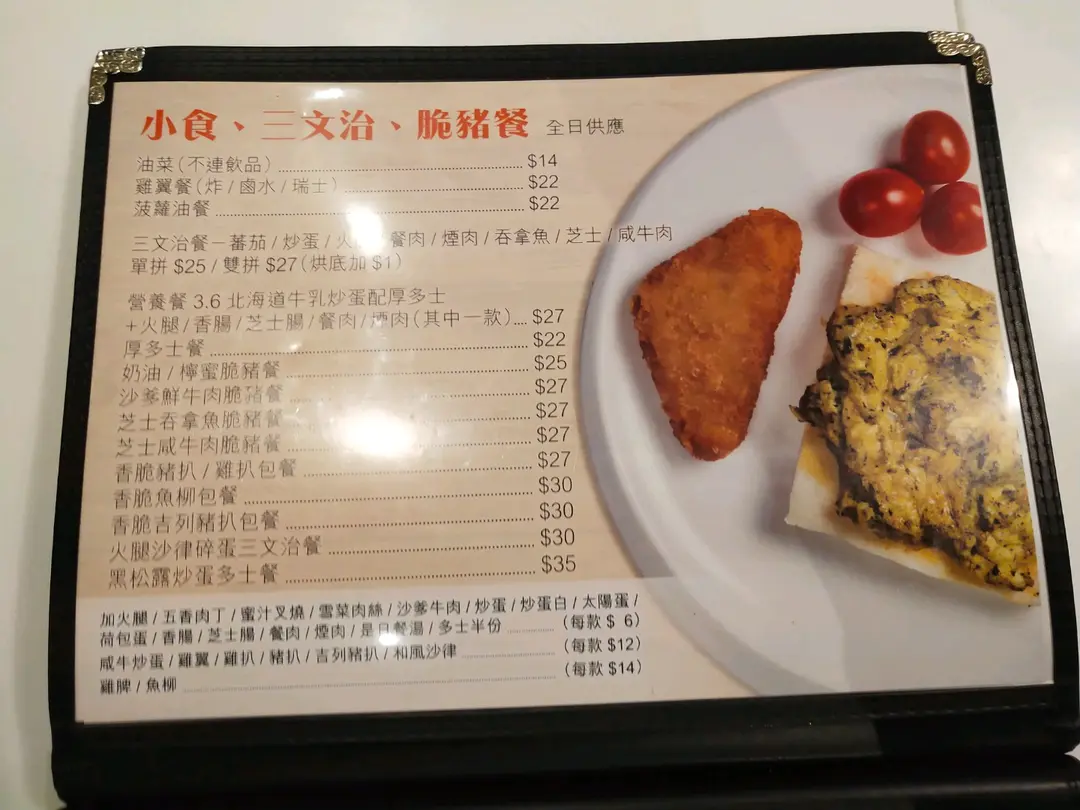 小食、三文治、脆豬餐 全日供應
油菜(不連飲品) $14
雞翼餐(炸/鹵水/瑞士) $22
菠蘿油餐 $22
三文治餐－蕃茄/炒蛋/火 餐肉/煙肉/吞拿魚/芝士/咸牛肉
單拼 $25 / 雙拼 $27(烘底加 $1)
營養餐 3.6 北海道牛乳炒蛋配厚多士
+火腿/香腸/芝士腸/餐肉/煙肉(其中一款) $27
厚多士餐 $22
奶油/檸蜜脆豬餐 $25
沙爹鮮牛肉脆豬餐 $27
芝士吞拿魚脆豬餐 $27
芝士咸牛肉脆豬餐 $27
香脆豬扒/雞扒包餐 $27
香脆魚柳包餐 $30
香脆吉列豬扒包餐 $30
火腿沙律碎蛋三文治餐 $30
黑松露炒蛋多士餐 $35
加火腿/五香肉丁/蜜汁叉燒/雪菜肉絲/沙爹牛肉/炒蛋/炒蛋白/太陽蛋/
荷包蛋/香腸/芝士腸/餐肉/煙肉/是日餐湯/多士半份 (每款 $ 6)
咸牛炒蛋/雞翼/雞扒/豬扒/吉列豬扒/和風沙律 (每款 $12)
雞脾/魚柳 (每款 $14)